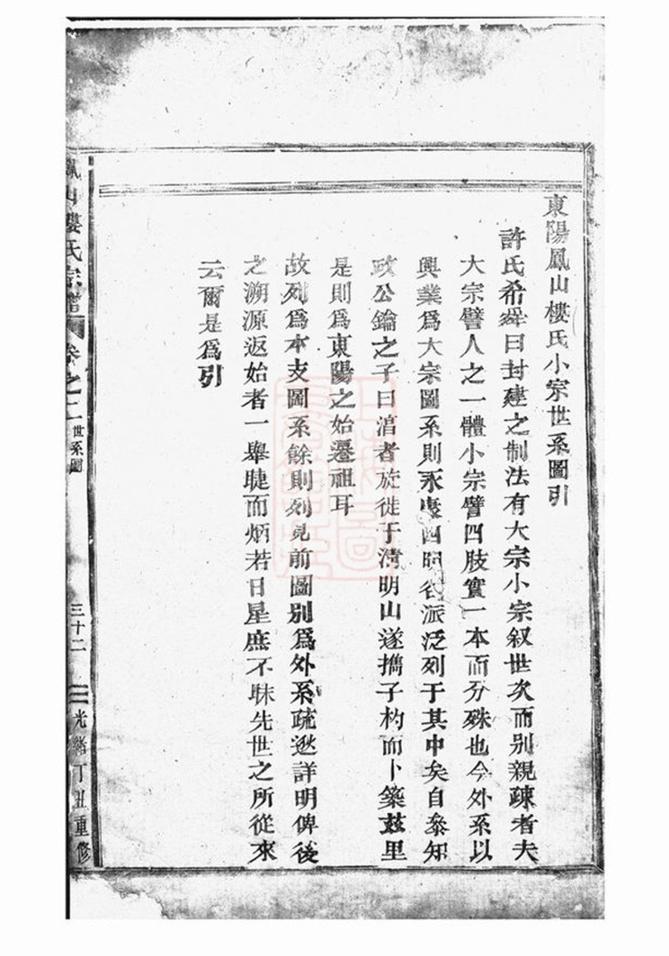 東陽鳳山樓氏小宗世系圖引
許氏希舜曰封建之制法有大宗小宗叙世次而別親疎者夫
大宗譬人之一體小宗譬四肢實一本而分殊也今外系以
興業爲大宗圖系則永康四明各派泛列于其中矣自叅知
政公鑰之子曰涫者旋徙于清明山遂攜子杓而卜築茲里
是則爲東陽之始遷祖耳
故列爲本支圖系餘則列見前圖別爲外系疏逖詳明俾後
之溯源返始者一舉睫而炳若日星庶不昧先世之所從來
云爾是爲引
鳳山樓氏宗譜 卷之二 世系圖 三十二 光緒丁丑重修